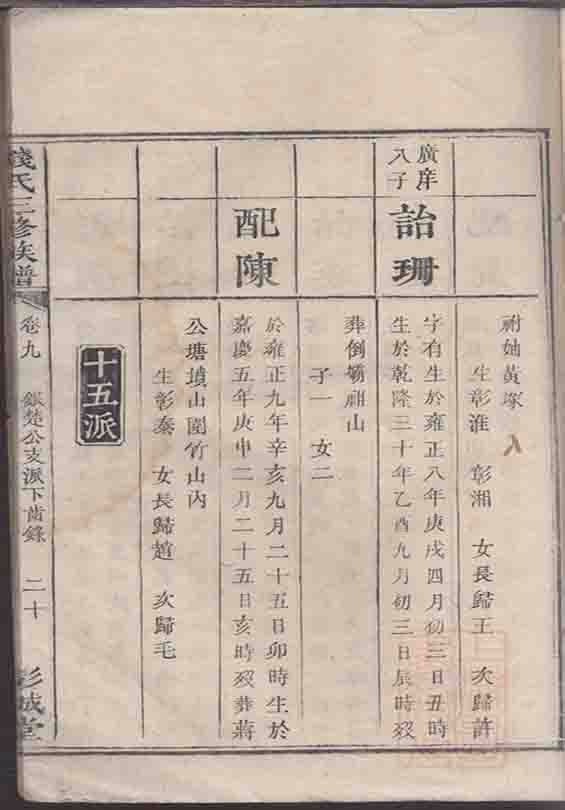 祔妣黃塚
生彰淮 彰湘 女長歸王 次歸許
廣庠
入子
詒珊
字有生於雍正八年庚戌四月初三日丑時
生於乾隆三十年乙酉九月初三日辰時歿
葬倒壩祖山
子一 女二
配陳
於雍正九年辛亥九月二十五日卯時生於
嘉慶五年庚申二月二十五日亥時歿葬蔣
公塘墳山園竹山內
生彰泰 女長歸趙 次歸毛
十五派
錢氏三修族譜
卷九 銀楚公支派下齒錄 二十
彭城堂